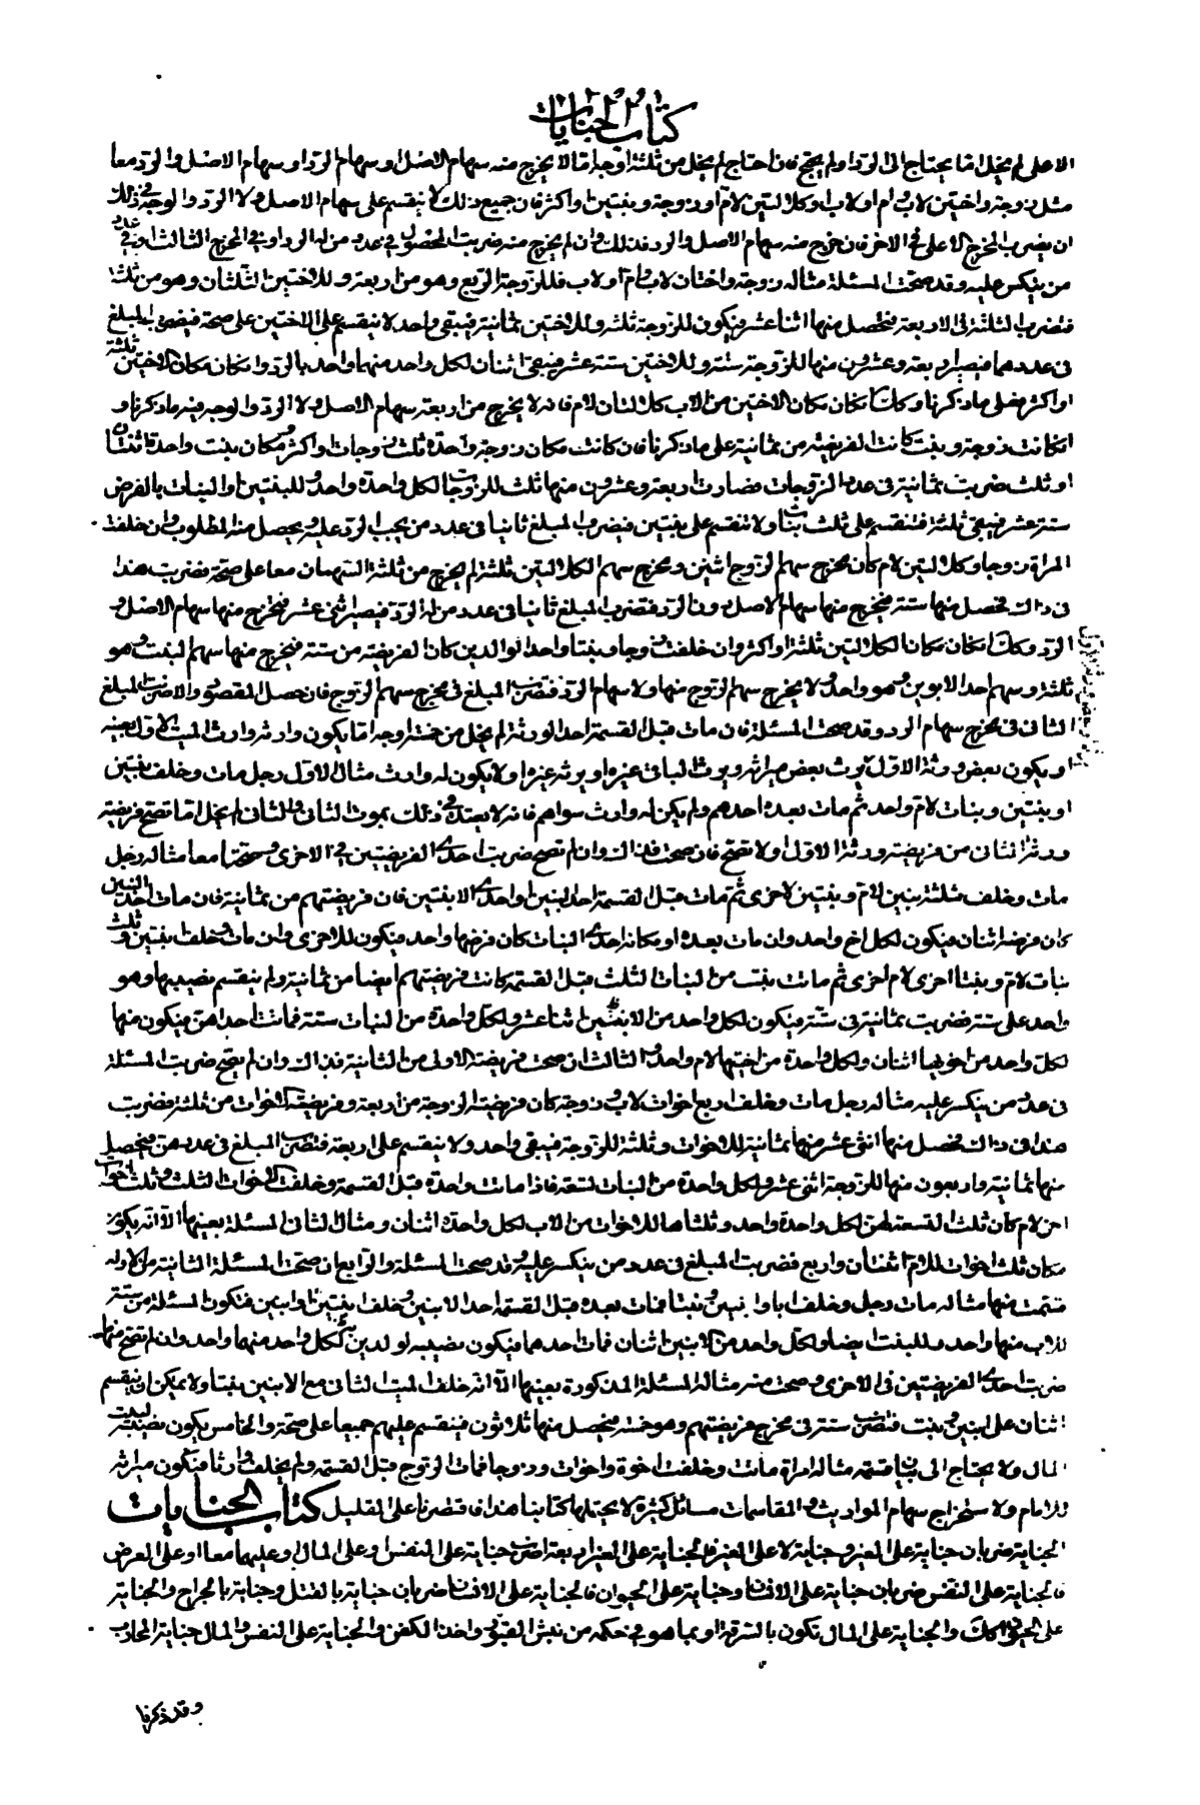 كتاب الجنايات
الاعلى لم يخل اما يحتاج الى الرد او لم يحتج فان احتاج لم يخل من ثلثة اوجه اما لا يخرج منه سهام الاصل او سهام الرد او سهام الاصل والرد معا
مثل زوجة واختين لاب وام او لاب وكلالتين لام او زوجة وبنتين واكثر فان جميع ذلك لا ينقسم على سهام الاصل ولا الرد والوجه في ذلك
ان يضرب المخرج الاعلى في الاخر فان خرج منه سهام الاصل والرد فذلك وان لم يخرج منه ضربت المحصول في عدد من له الرد او في المخرج الثالث او في عدد
من ينكسر عليه وقد صحت المسئلة مثاله زوجة واختان لاب وام او لاب فللزوجة الربع وهو من اربعة وللاختين الثلثان وهو من ثلثة
فتضرب الثلثة في الاربعة فتحصل منها اثنا عشر فيكون للزوجة ثلثة وللاختين ثمانية فيبقى واحد لا ينقسم على الاختين على صحة فيضرب المبلغ
في عددهما فيصير اربعة وعشرون منها للزوجة ستة وللاختين ستة عشر فيبقى اثنان لكل واحد منهما واحد بالرد وان كان مكان الاختين ثلثة
او اكثر فعلى ما ذكرنا وكك ان كان مكان الاختين من الاب كلالتان لام فانه لا يخرج من اربعة سهام الاصل ولا الرد والوجه فيه ما ذكرنا و
ان كانت زوجة وبنت كانت الفريضة من ثمانية على ما ذكرنا فان كانت مكان زوجة واحدة ثلث زوجات واكثر ومكان بنت واحدة ثنتان
او ثلث ضربت ثمانية في عدد الزوجات فصارت اربعة وعشرون منها ثلث للزوجات لكل واحدة واحد وللبنتين والبنات بالفرض
ستة عشر فيبقى ثلثة فتنقسم على ثلث بنات ولا تنقسم على بنتين فيضرب المبلغ ثانيا في عدد من يجب الرد عليه ويحصل منه المطلوب وان خلفت
المراة زوجا وكلالتين لام كان مخرج سهام الزوج اثنين ومخرج سهام الكلالتين ثلثة لم يخرج من ثلثة السهمان معا على صحة فضربت هذا
في ذاك فحصل منها ستة فيخرج منها سهام الاصل دون الرد فتضرب المبلغ ثانيا في عدد من له الرد فيصير اثنى عشر فيخرج منها سهام الاصل و
الرد وكك ان كان مكان الكلالتين ثلثة او اكثر وان خلفت زوجا وبنتا واحد الوالدين كان الفريضة من ستة فيخرج منها سهم البنت وهو
ثلثة وسهم احد الابوين وهو واحد ولا يخرج سهم الزوج منها ولا سهام الرد فتضرب المبلغ في مخرج سهم الزوج فان حصل المقصود والا ضربت المبلغ
الثاني في مخرج سهام الرد وقد صحت المسئلة فان مات قبل القسمة احد الورثة لم يخل من خمسة اوجه اما يكون وارثه وارث الميت الاول بعينه
او يكون بعض ورثة الاول يرث بعض ميراثه ويرث الباقي غيره او يرثه غيره او لا يكون له وارث مثال الاول رجل مات وخلف بنتين
او بنتين وبنات لام واحد ثم مات بعده احدهم ولم يكن له وارث سواهم فانه لا يعتد في ذلك بموت الثاني والثاني لم يخل اما تصح فريضة
ورثة الثاني من فريضة ورثة الاول او لا تصح فان صحت فذاك وان لم تصح ضربت احدى الفريضتين في الاخرى وصحتا معا مثاله رجل
مات وخلف ثلثة بنين لام وبنتين لاخرى ثم مات قبل القسمة احد البنين او احدى الابنتين فان فريضتهم من ثمانية فان مات احد البنين
كان فرضه اثنان فيكون لكل اخ واحد وان مات بعده او مكانه احدى البنات كان فرضها واحد فيكون للاخرى وان مات وخلف بنتين وثلث
بنات لام وبنتا اخرى لام اخرى ثم ماتت بنت من البنات الثلث قبل القسمة كانت فريضتهم ايضا من ثمانية ولم ينقسم نصيبها وهو
واحد على ستة فضربت ثمانية في ستة فيكون لكل واحد من الابنين اثنا عشر ولكل واحدة من البنات ستة فماتت احداهن فيكون منها
لكل واحد من اخويها اثنان ولكل واحدة من اختيها لام واحد والثالث ان صحت فريضة الاولى من الثانية فذاك وان لم يصح ضربت المسئلة
في عدد من ينكسر عليه مثاله رجل مات وخلف اربع اخوات لاب وزوجة كان فريضة الزوجة من اربعة وفريضة الاخوات من ثلثة فضربت
هذا في ذاك فحصل منها اثنى عشر منها ثمانية للاخوات وثلثة للزوجة فيبقى واحد ولا ينقسم على اربعة فتضرب المبلغ في عددهن فيحصل
منها ثمانية واربعون منها للزوجة اثنى عشر ولكل واحدة من البنات تسعة فاذا ماتت واحدة قبل القسمة وخلفت الاخوات الثلث وثلث اخوات
اخر لام كان ثلث التسعة لهن لكل واحدة واحد وثلثاها للاخوات من الاب لكل واحدة اثنان ومثال الثاني المسئلة بعينها الا انه يكون
مكان ثلث اخوات للام اثنان واربع فضربت المبلغ في عدد من ينكسر عليه وقد صحت المسئلة والرابع ان صحت المسئلة الثانية من الاوله
قسمت منها مثاله مات رجل وخلف ابا وابنين وبنتا فمات بعده قبل القسمة احد الابنين وخلف بنتين وابنين فتكون المسئلة من ستة
للاب منها واحد وللبنت ايضا ولكل واحد من الابنين اثنان فمات احدهما فيكون نصيبه لولدين لكل واحد منهما واحد وان لم تصح منها
ضربت احدى الفريضتين في الاخرى وصحت منه مثاله المسئلة المذكورة بعينها الا انه خلف الميت الثاني مع الابنين بنتا ولا يمكن ان ينقسم
اثنان على ابنين وبنت فتضرب ستة في مخرج فريضتهم وهو خمسة فيحصل منها ثلاثون فينقسم عليهم جميعا على صحة والخامس يكون نصيبه لبيت
المال ولا يحتاج الى بيان قسمة مثاله امراة ماتت وخلفت اخوة واخوات وزوجا فمات الزوج قبل القسمة ولم يخلف وارثا فيكون ميراثه
للامام ولاستخراج سهام المواريث والمقاسمات مسائل كثيرة لا يحتملها كتابنا هذا فاقتصرنا على القليل كتاب الجنايات
الجناية ضربان جناية على الغير وجناية لا على الغير فالجناية على الغير اربعة اضرب جناية على النفس او على المال او عليهما معا او على العرض
فالجناية على النفس ضربان جناية على الانسان وجناية على الحيوان فالجناية على الانسان ضربان جناية بالقتل وجناية بالجراح والجناية
على الحيوان كك والجناية على المال تكون بالسرقة او بما هو في حكمه من نبش القبور واخذ الكفن والجناية على النفس والمال جناية المحارب
وقد ذكرنا